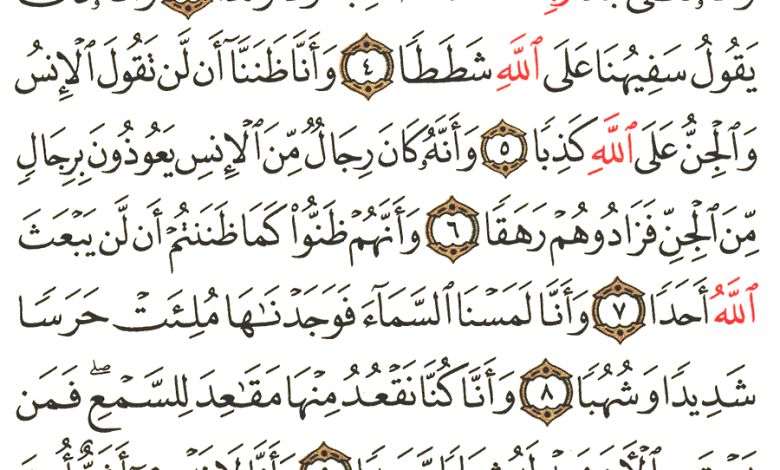 يَقُولُ سَفِيهُنَا عَلَى ٱللَّهِ شَطَطًا ٤ وَأَنَّا ظَنَنَّآ أَن لَّن تَقُولَ ٱلْإِنسُ
وَٱلْجِنُّ عَلَى ٱللَّهِ كَذِبًا ٥ وَأَنَّهُۥ كَانَ رِجَالٌ مِّنَ ٱلْإِنسِ يَعُوذُونَ بِرِجَالٍ
مِّنَ ٱلْجِنِّ فَزَادُوهُمْ رَهَقًا ٦ وَأَنَّهُمْ ظَنُّوا۟ كَمَا ظَنَنتُمْ أَن لَّن يَبْعَثَ
ٱللَّهُ أَحَدًا ٧ وَأَنَّا لَمَسْنَا ٱلسَّمَآءَ فَوَجَدْنَٰهَا مُلِئَتْ حَرَسًا
شَدِيدًا وَشُهُبًا ٨ وَأَنَّا كُنَّا نَقْعُدُ مِنْهَا مَقَٰعِدَ لِلسَّمْعِ ۖ فَمَن